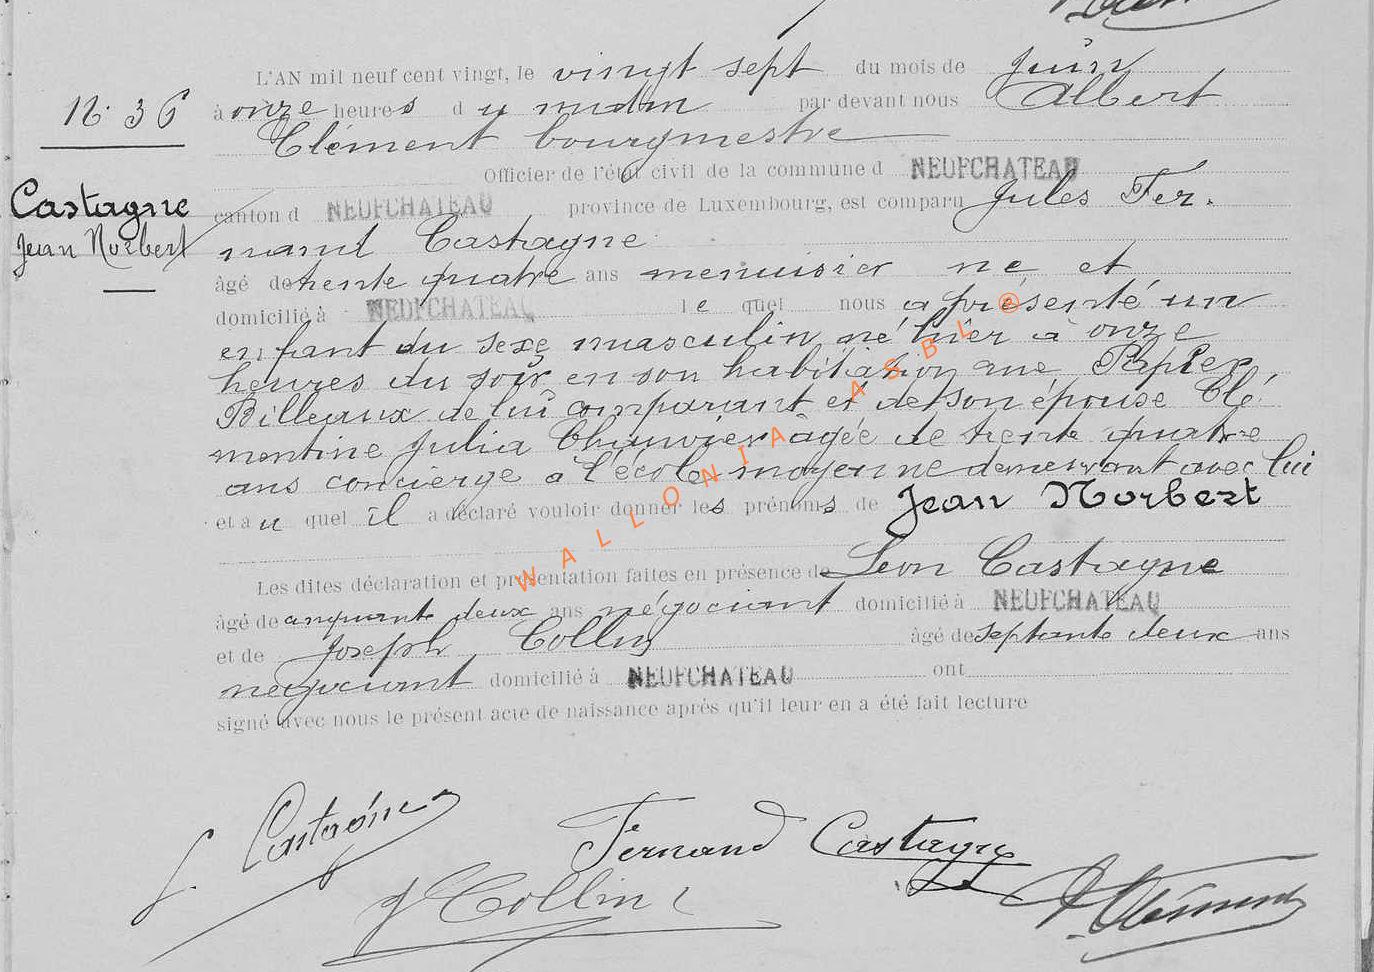 L'AN mil neuf cent vingt, le vingt sept du mois de Juin
N° 36
à onze heures du matin par devant nous Albert
Clément bourgmestre
Officier de l'état civil de la commune d NEUFCHATEAU
Castagne
Jean Norbert
canton d NEUFCHATEAU province de Luxembourg, est comparu Jules Fer-
nand Castagne
âgé de trente quatre ans menuisier né et
domicilié à NEUFCHATEAU lequel nous a présenté un
enfant du sexe masculin, né hier à onze
heures du soir en son habitation rue
Billeaux de lui comparant et de son épouse Clé
mentine Julia Chauvier âgée de trente quatre
ans concierge à l'école moyenne demeurant avec lui
et au quel il a déclaré vouloir donner les prénoms de Jean Norbert
Les dites déclaration et présentation faites en présence de Léon Castagne
âgé de cinquante deux ans négociant domicilié à NEUFCHATEAU
et de Joseph Collin âgé de septante deux ans
négociant domicilié à NEUFCHATEAU ont
signé avec nous le présent acte de naissance après qu'il leur en a été fait lecture
WALLONIA ASBL ©
L Castagne
Fernand Castagne
J Collin
A Clément